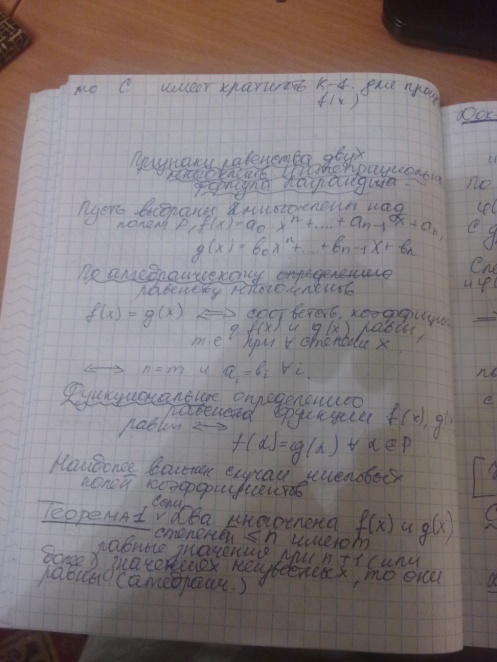 то С имеет кратность K-1 для
f(x)
Признаки равенства двух
многочленов. Интерполяционная
формула Лагранжа.
Пусть выбраны 2 многочлена над
полем P, f(x)=a₀xⁿ+....+aₙ₋₁x+aₙ,
g(x)=b₀xⁿ+...+bₙ₋₁x+bₙ
По алгебраическому определению
равенству многочленов
f(x)=g(x) ⟺ соответств. коэффици.
f(x) и g(x) равны,
т.е при ∀ степени x
⟺ n=m и aᵢ=bᵢ ∀i.
Функциональн определению
равенства функции f(x), g(
равны ⟺
f(α)=g(α) ∀ α∈P
Наиболее важен случай числовых
полей коэффициентов
если
Теорема1 ∨ Два многочлена f(x) и g(x)
степени ≤n имеют
равные значения при n+1 (или
более) значениях неизвесных, то они
равны (алгебраич.)
Док
По
с
Спе